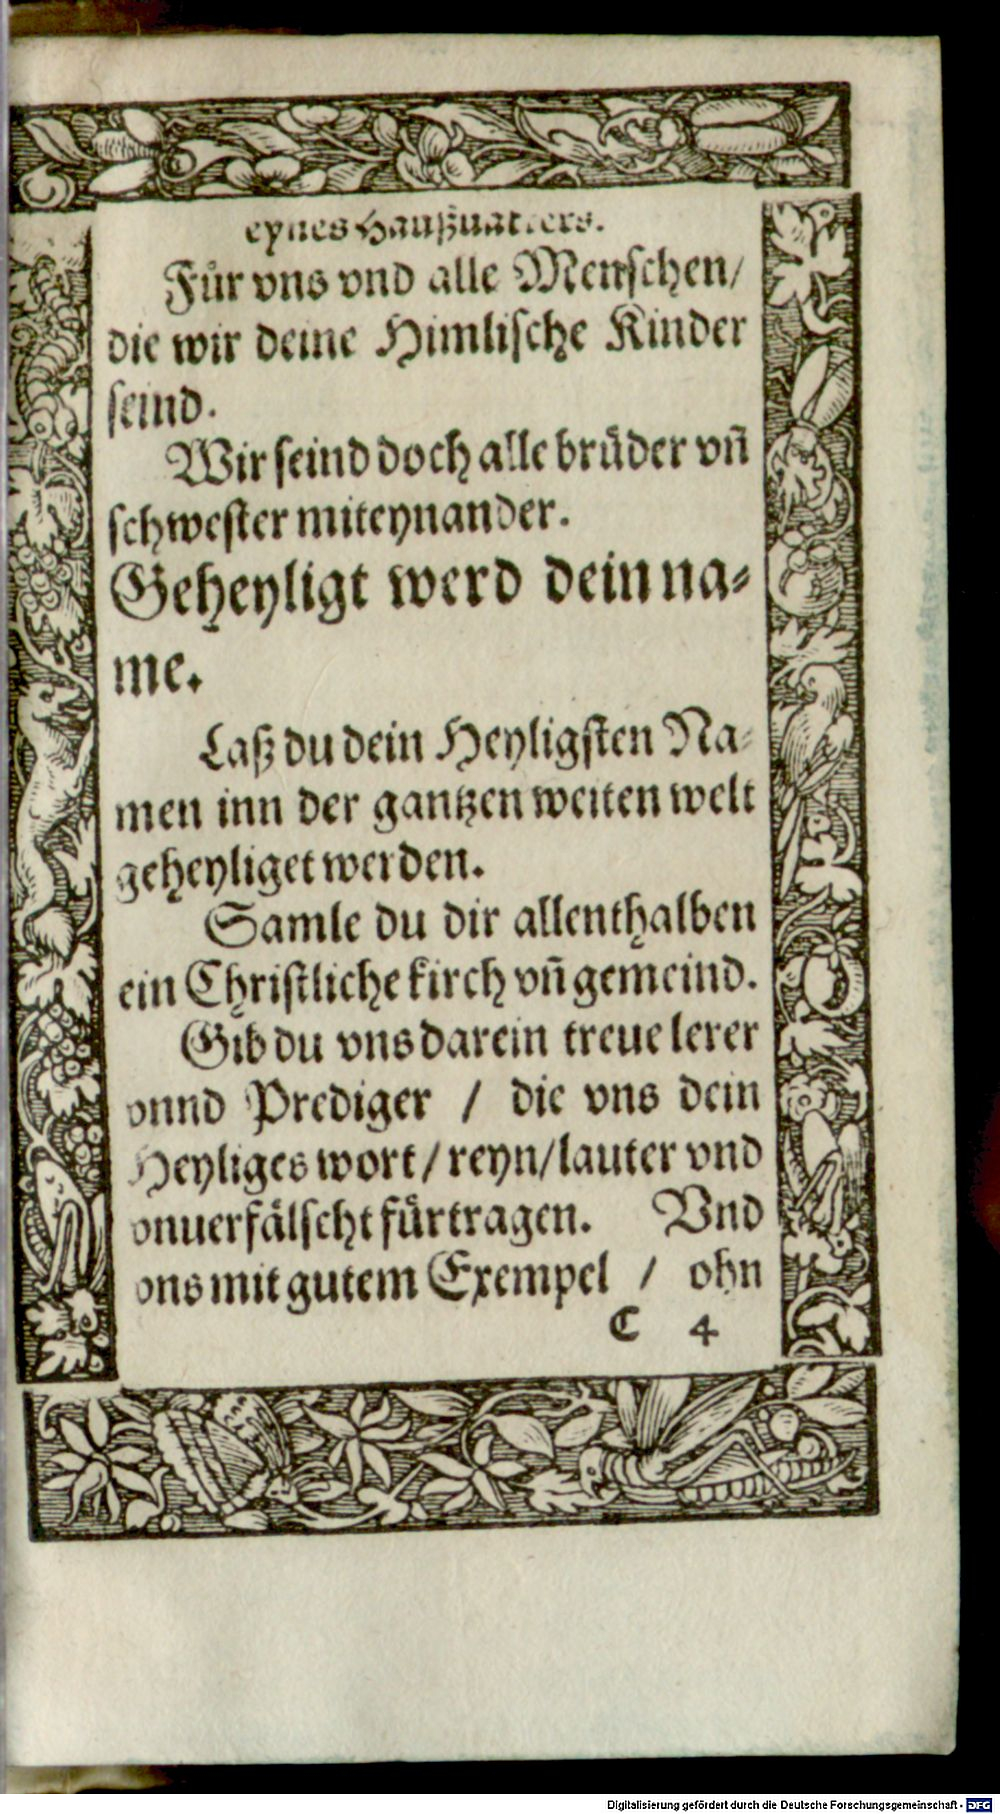 eynes Haußuatters.
Für vns vnd alle Menschen/
die wir deine Himlische Kinder
seind.
Wir seind doch alle brüder vñ
schwester miteynander.
Geheyligt werd dein na⸗
me.
Laß du dein Heyligsten Na⸗
men inn der gantzen weiten welt
geheyliget werden.
Samle du dir allenthalben
ein Christliche kirch vñ gemeind.
Gib du vns darein treue lerer
vnnd Prediger / die vns dein
Heyliges wort / reyn/lauter vnd
vnuerfälscht fürtragen. Vnd
vns mit gutem Exempel / ohn
C 4
Digitalisierung gefördert durch die Deutsche Forschungsgemeinschaft - DFG